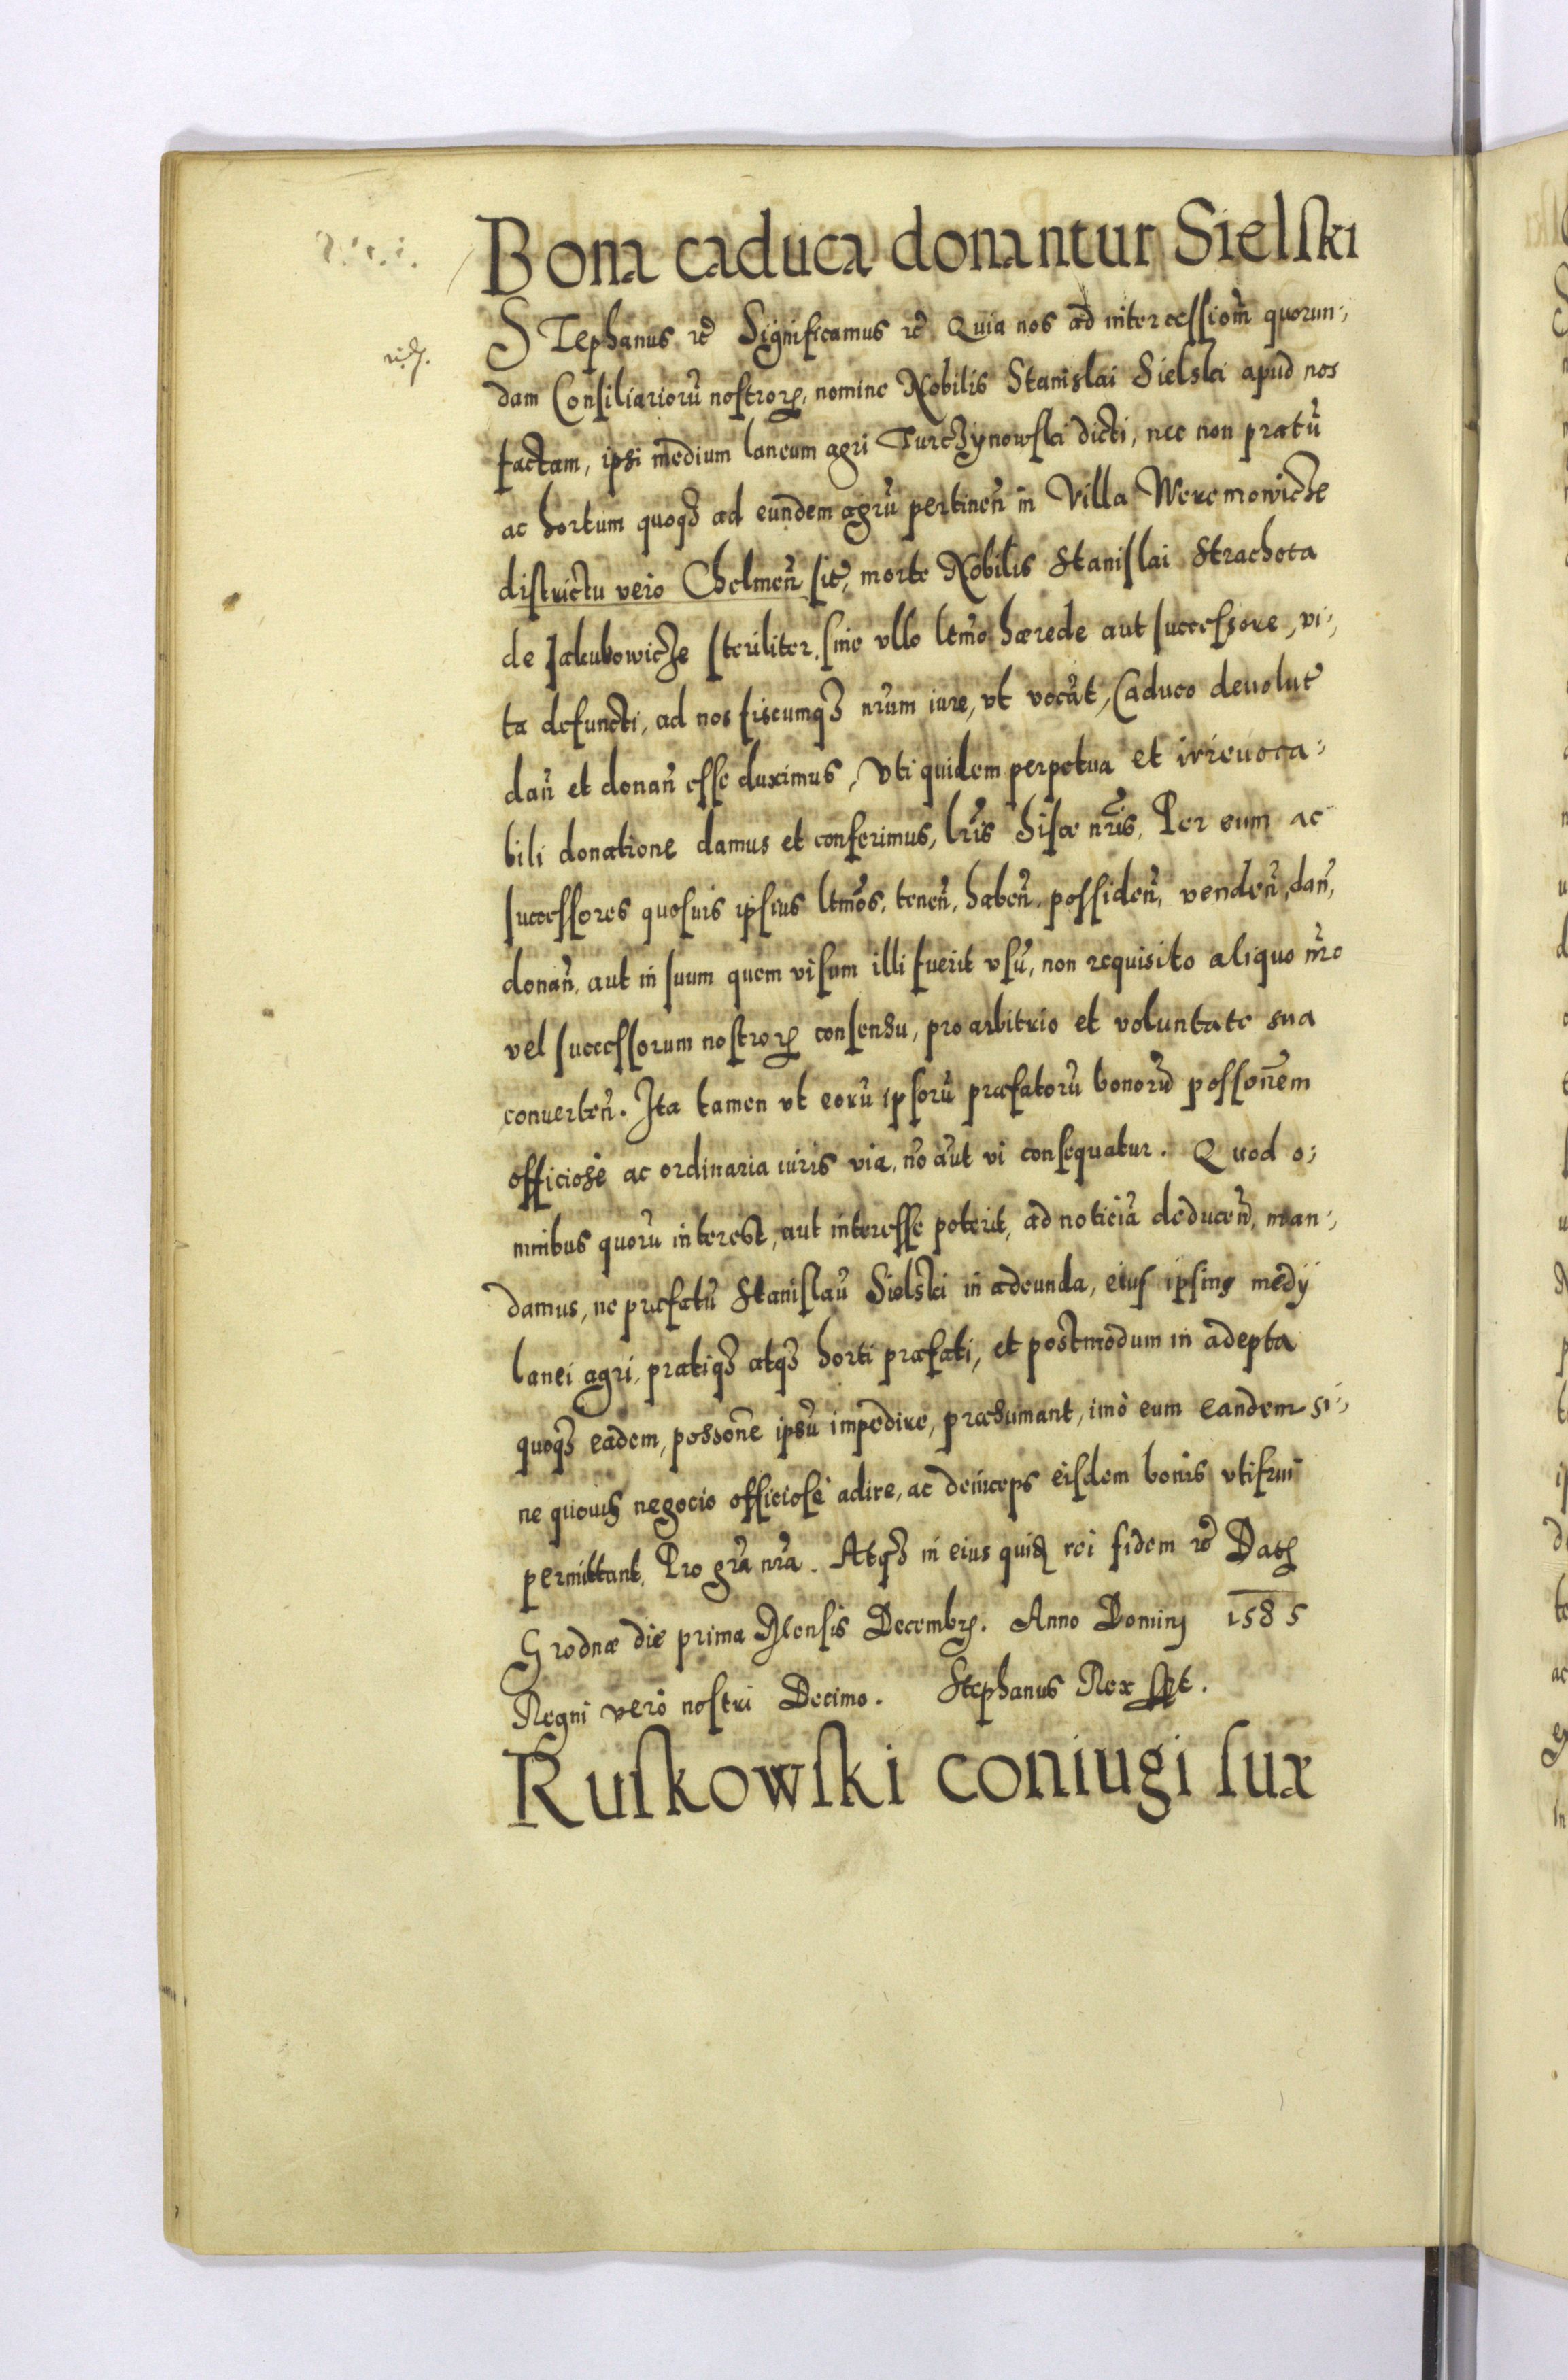 Bona caduca donantur Sielski
STephanus rc̃ Significamus rc̃ Quia nos ad intercessiom̃ quorun-
dam Consiliarioru͂ nostroꝝ, nomine Nobilis Stanislai Sielski apud nos
factam, ipsi medium laneum agri Turczynowski dicti, nec non pratu͂
ac hortum quoqꝫ ad eundem agru͂ pertinen͂ in Villa Weremowicze
districtu vero Chelmen͂ sit̃, morte Nobilis Stanislai Strachota
de Jakubowicze steriliter, sine vllo ltm̃o hærede aut successore, vi-
ta defuncti, ad nos fiscumqꝫ nr̃um iure, vt vocãt, Caduco deuolut̃
dan͂ et donan͂ esse duximus, Vti quidem perpetua et irreuoca-
bili donatione damus et conferimus, lr̃is hisce nr̃is, Per eum ac
successores quosuis ipsius ltm̃os, tenen͂, haben͂, possiden͂, venden͂, dan͂,
donan͂, aut in suum quem visum illi fuerit vsu͂, non requisito aliquo nr̃o
vel successorum nostroꝝ consensu, pro arbitrio et voluntate sua
conuerten͂. Ita tamen vt eoru͂ ipsoru͂ præfatoru͂ bonoru͂ posson͂em
officiosè ac ordinaria iuris via, no͂ aut vi consequatur. Quod o-
mnibus quoru͂ interest, aut interesse poterit, ad noticia͂ deducen͂, man-
damus, ne præfatu͂ Stanislau͂ Sielski in adeunda, eius ipsius medÿ
lanei agri, pratiqꝫ atqꝫ horti præfati, et postmodum in adepta
quoqꝫ eadem, posson͂e ipsu͂ impedire, præsumant, imò eum eandem si-
ne quouis negocio officiosè adire, ac deinceps eisdem bonis vtifrui
permittant, Pro gr̃a nr̃a. Atqꝫ in eius quidꝫ rei fidem rc̃ Datꝫ
Grodnæ die prima Mensis Decembrꝫ. Anno Domini 1585
Regni vero nostri Decimo. Stephanus Rex sst.
Ruskowski coniugi suæ